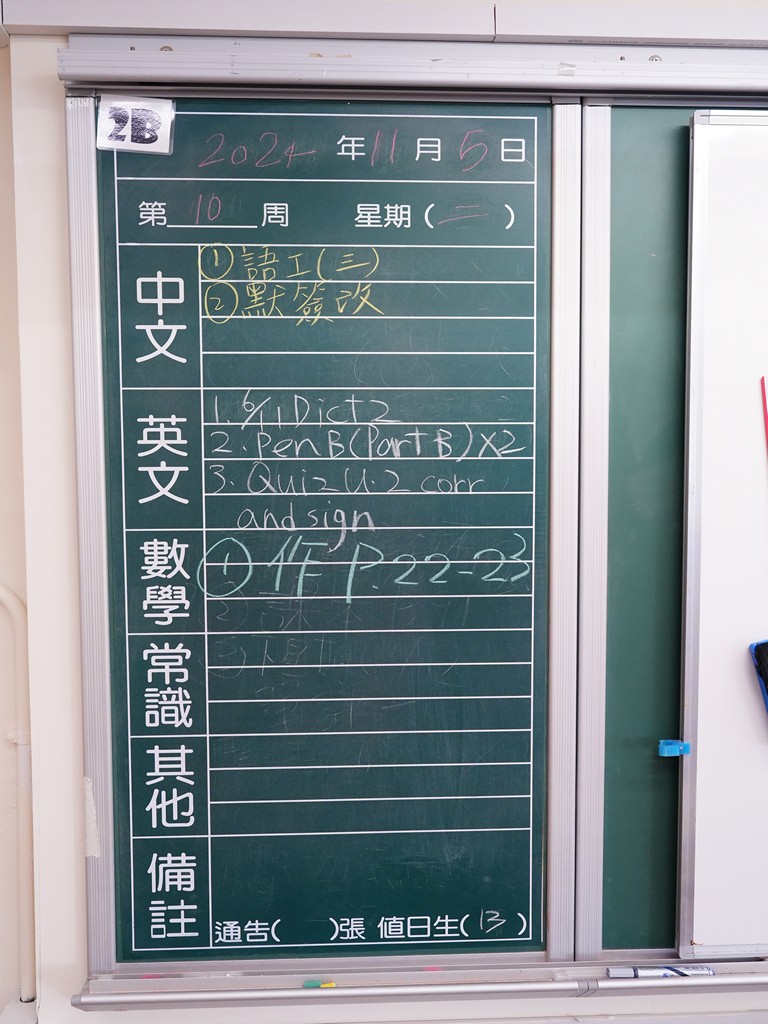 2B
2024年11月5日
第10周 星期(二)
中文
①語工(三)
②默簽改
英文
1. 6/11 Dict 2
2. Pen B (Part B) X2
3. Quiz U.2 corr
and sign
數學
① 作 P.22-23
常識
其他
備註
通告( )張 值日生(13)